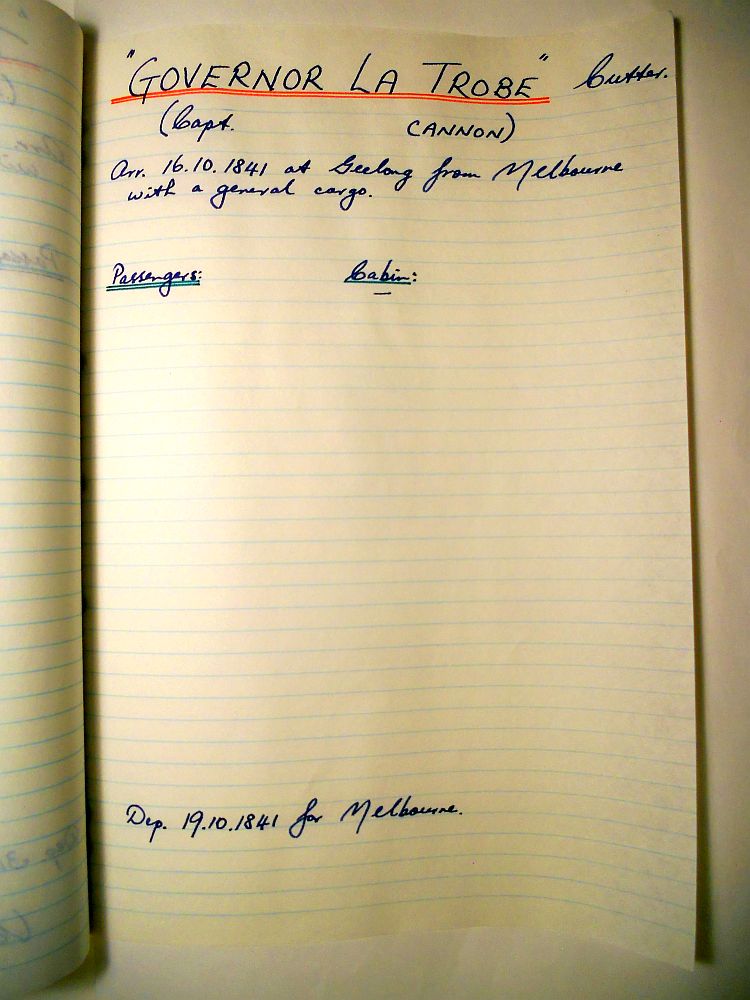 "GOVERNOR LA TROBE" Cutter.
(Capt. CANNON)
Arr. 16.10.1841 at Geelong from Melbourne
with a general cargo.
Passengers: Cabin:
—
Dep. 19.10.1841 for Melbourne.